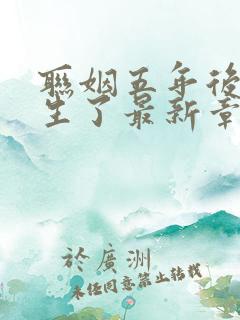 聯姻五年後
生了最新章
於廣洲
未经同意禁止转载